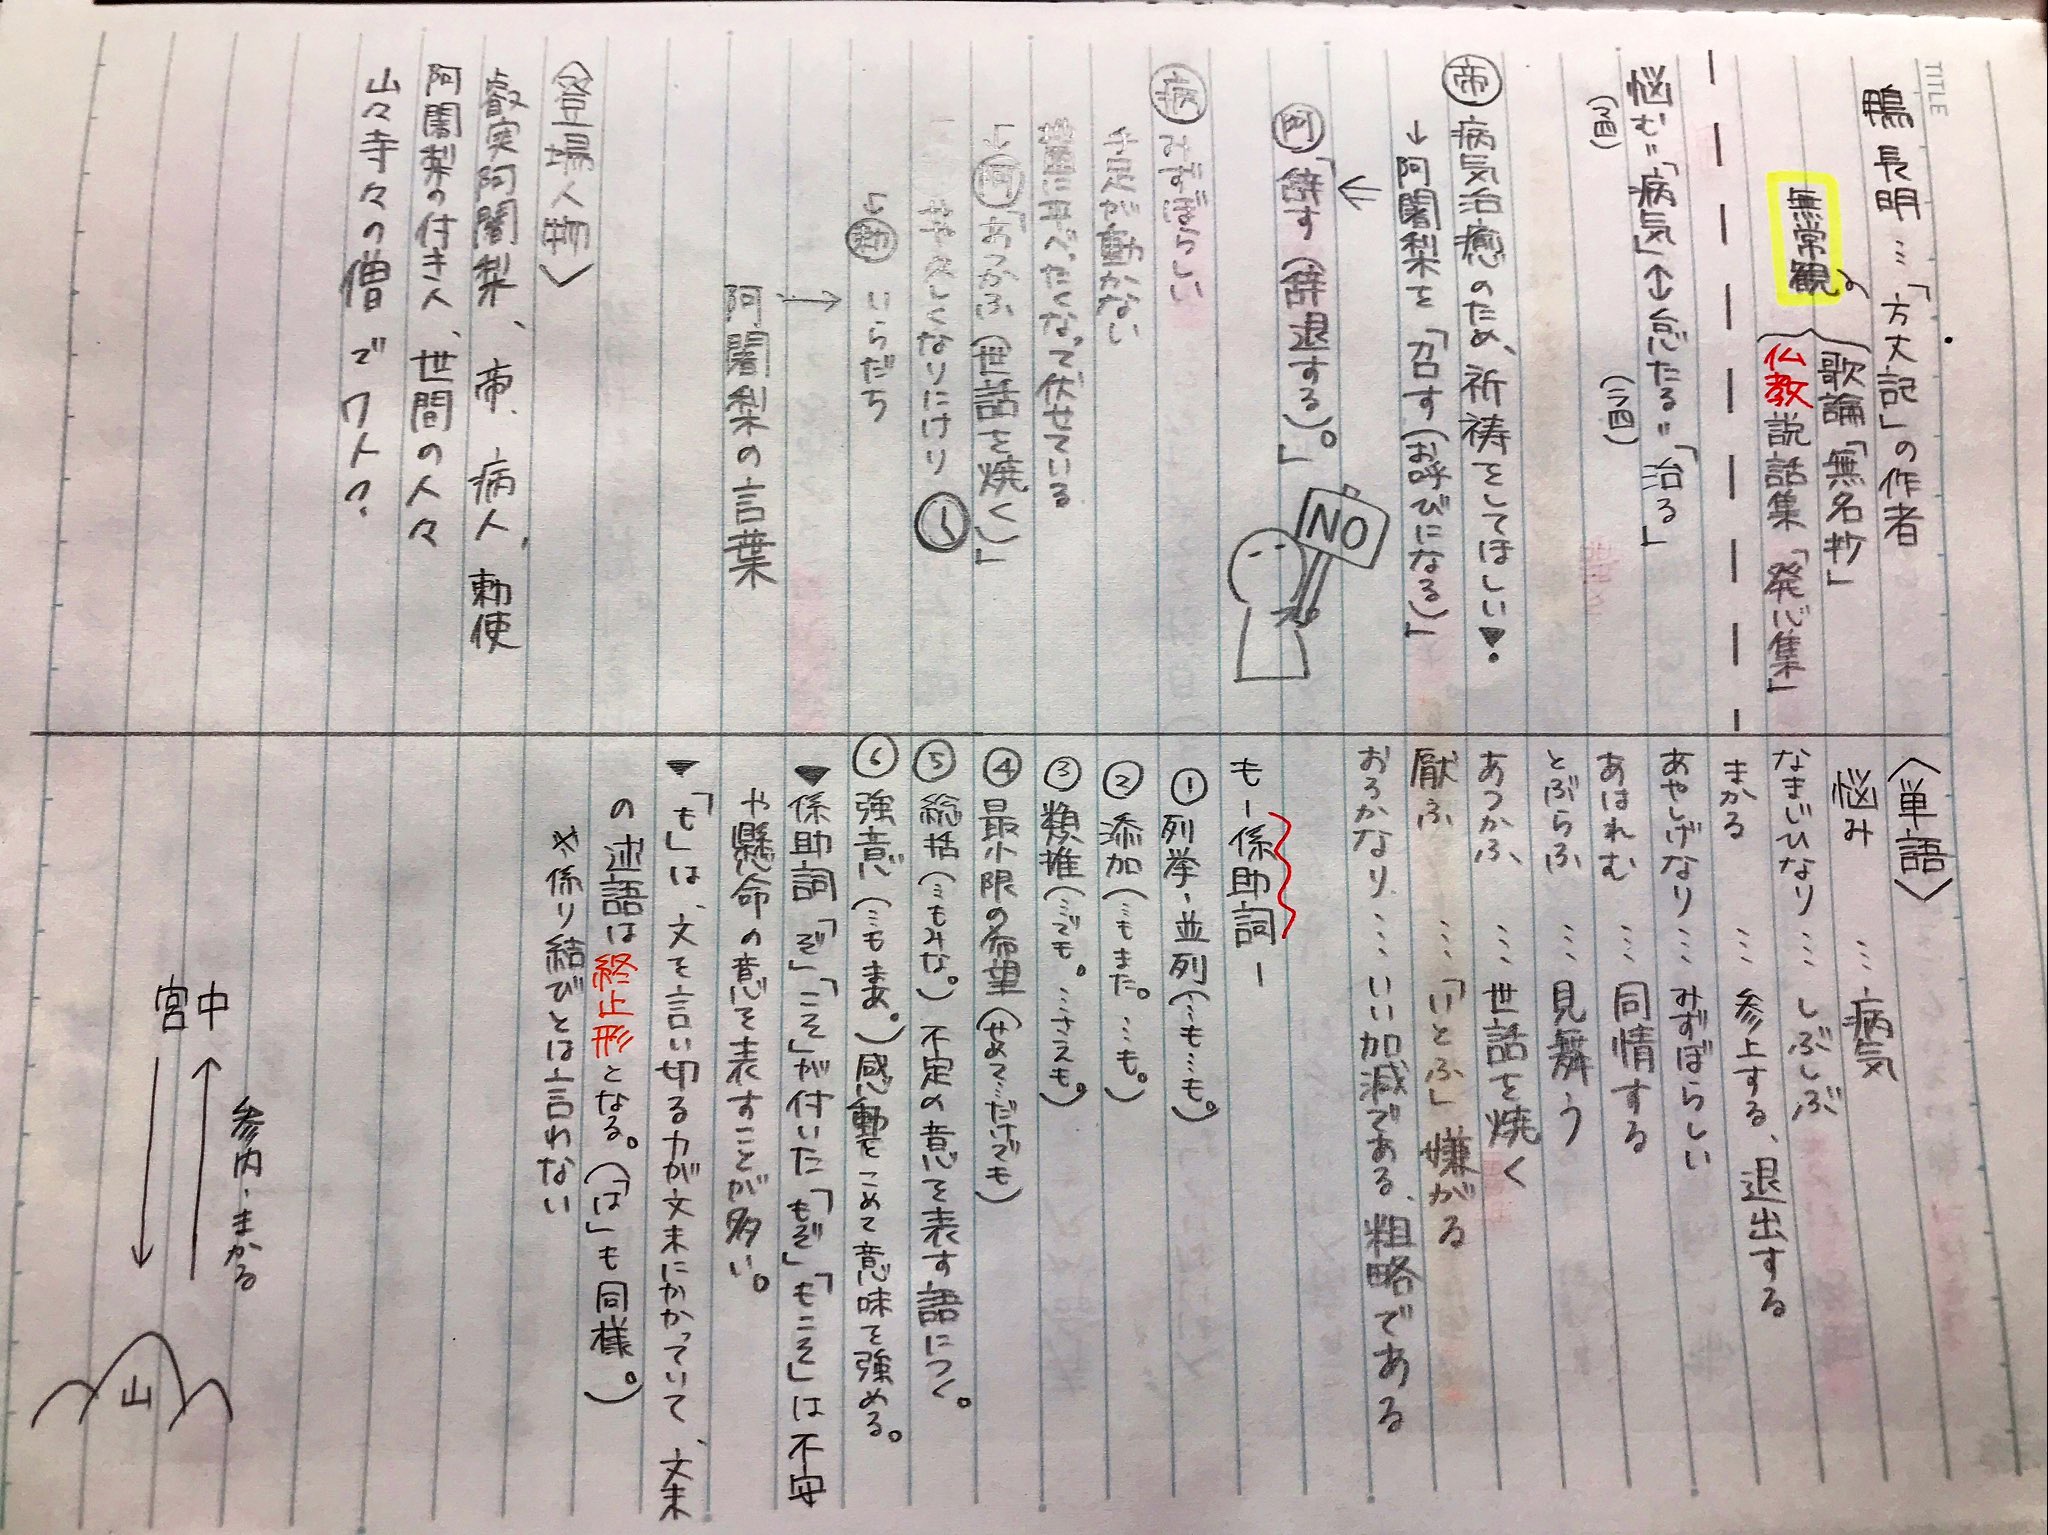 TITLE
鴨長明…「方丈記」の作者
歌論「無名抄」
仏教説話集「発心集」
無常観
悩む=「病気」↔怠たる=「治る」
(マ四)
(ラ四)
帝 病気治癒のため、祈祷をしてほしい
→阿闍梨を「召す(お呼びになる)」
阿「辞す(辞退する)。」
NO
病 みずぼらしい
手足が動かない
平べったくなって伏せている
→阿「あつかふ(世話を焼く)」
久しくなりにけり
→勅 いらだち
阿闍梨の言葉
〈登場人物〉
叡実阿闍梨、帝、病人、勅使
阿闍梨の付き人、世間の人々
山々寺々の僧で7人?
〈単語〉
悩み …病気
なまじひなり…しぶしぶ
まかる …参上する、退出する
あやしげなり…みずぼらしい
あはれむ …同情する
とぶらふ …見舞う
あつかふ …世話を焼く
厭ふ …「いとふ」嫌がる
おろかなり…いい加減である、粗略である
もー係助詞ー
①列挙・並列(…も…も。)
②添加(…もまた。…も。)
③類推(…でも。…さえも。)
④最小限の希望(せめて…だけでも)
⑤総括(…もみな。)不定の意を表す語につく。
⑥強意(…もまあ。)感動をこめて意味を強める。
▼係助詞「ぞ」「こそ」が付いた「もぞ」「もこそ」は不安
や懸命の意を表すことが多い。
▼「も」は、文を言い切る力が文末にかかっていて、文末
の述語は終止形となる。(「は」も同様。)
※係り結びとは言わない
参内・まかる
宮中
山